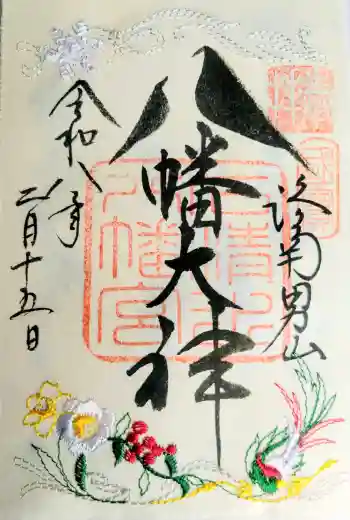 洛南男山
八幡大神
令和八年
二月十五日
石清水
八幡宮